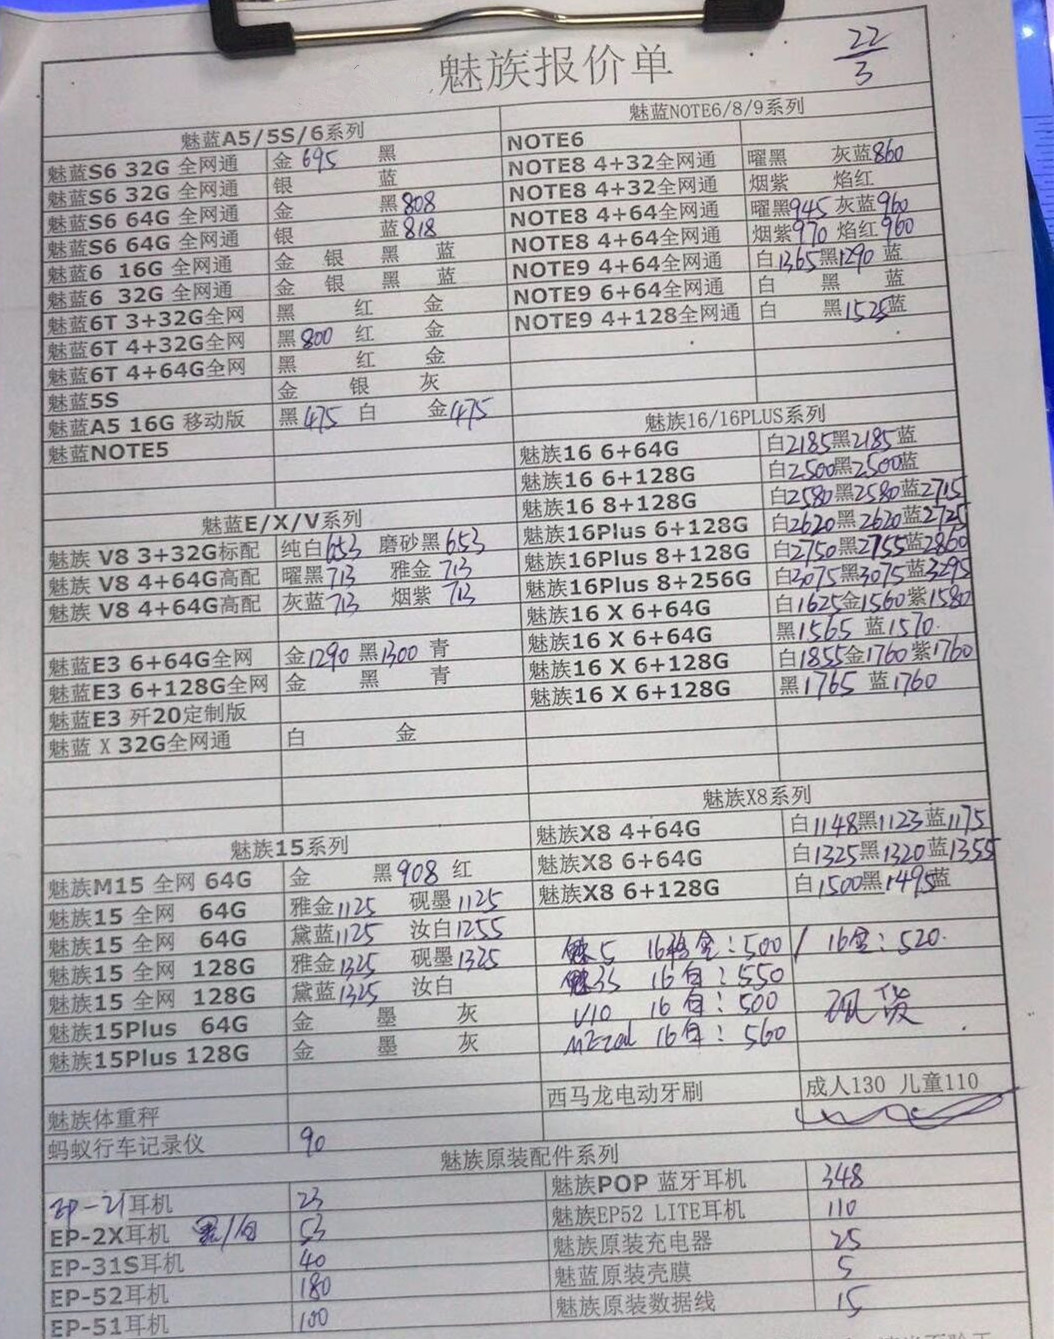 魅族报价单
22/3
魅蓝A5/5S/6系列
魅蓝S6 32G 全网通 金 695 黑
魅蓝S6 32G 全网通 银 蓝
魅蓝S6 64G 全网通 金 黑808
魅蓝S6 64G 全网通 银 蓝818
魅蓝6 16G 全网通 金 银 黑 蓝
魅蓝6 32G 全网通 金 银 黑 蓝
魅蓝6T 3+32G全网 黑 红 金
魅蓝6T 4+32G全网 黑800 红 金
魅蓝6T 4+64G全网 黑 红 金
魅蓝5S 金 银 灰
魅蓝A5 16G 移动版 黑475 白 金475
魅蓝NOTE5
魅蓝E/X/V系列
魅族 V8 3+32G标配 纯白653 磨砂黑653
魅族 V8 4+64G高配 曜黑713 雅金713
魅族 V8 4+64G高配 灰蓝713 烟紫713
魅蓝E3 6+64G全网 金1290 黑1300 青
魅蓝E3 6+128G全网 金 黑 青
魅蓝E3 歼20定制版
魅蓝 X 32G全网通 白 金
魅族15系列
魅族M15 全网 64G 金 黑908 红
魅族15 全网 64G 雅金1125 砚墨1125
魅族15 全网 64G 黛蓝1125 汝白1255
魅族15 全网 128G 雅金1325 砚墨1325
魅族15 全网 128G 黛蓝1325 汝白
魅族15Plus 64G 金 墨 灰
魅族15Plus 128G 金 墨 灰
魅族体重秤
蚂蚁行车记录仪 90
魅蓝NOTE6/8/9系列
NOTE6
NOTE8 4+32全网通 曜黑 灰蓝860
NOTE8 4+32全网通 烟紫 焰红
NOTE8 4+64全网通 曜黑945 灰蓝960
NOTE8 4+64全网通 烟紫970 焰红960
NOTE9 4+64全网通 白1365黑1290 蓝
NOTE9 6+64全网通 白 黑 蓝
NOTE9 4+128全网通 白 黑1525蓝
魅族16/16PLUS系列
魅族16 6+64G 白2185黑2185蓝
魅族16 6+128G 白2500黑2500蓝
魅族16 8+128G 白2580黑2580蓝2715
魅族16Plus 6+128G 白2620黑2620蓝2725
魅族16Plus 8+128G 白2750黑2755蓝2860
魅族16Plus 8+256G 白3075黑3075蓝3295
魅族16 X 6+64G 白1625金1560紫1580
魅族16 X 6+64G 黑1565 蓝1570.
魅族16 X 6+128G 白1855金1760紫1760
魅族16 X 6+128G 黑1765 蓝1760
魅族X8系列
魅族X8 4+64G 白1148黑1123蓝1175
魅族X8 6+64G 白1325黑1320蓝1355
魅族X8 6+128G 白1500黑1495蓝
魅5 16移金:500 / 16金:520.
16白:550
V10 16白:500 现货
Metal 16白:560
西马龙电动牙刷 成人130 儿童110
魅族原装配件系列
EP-21耳机 23
EP-2X耳机 黑/白 53
EP-31S耳机 40
EP-52耳机 180
EP-51耳机 100
魅族POP 蓝牙耳机 348
魅族EP52 LITE耳机 110
魅族原装充电器 25
魅蓝原装壳膜 5
魅族原装数据线 15